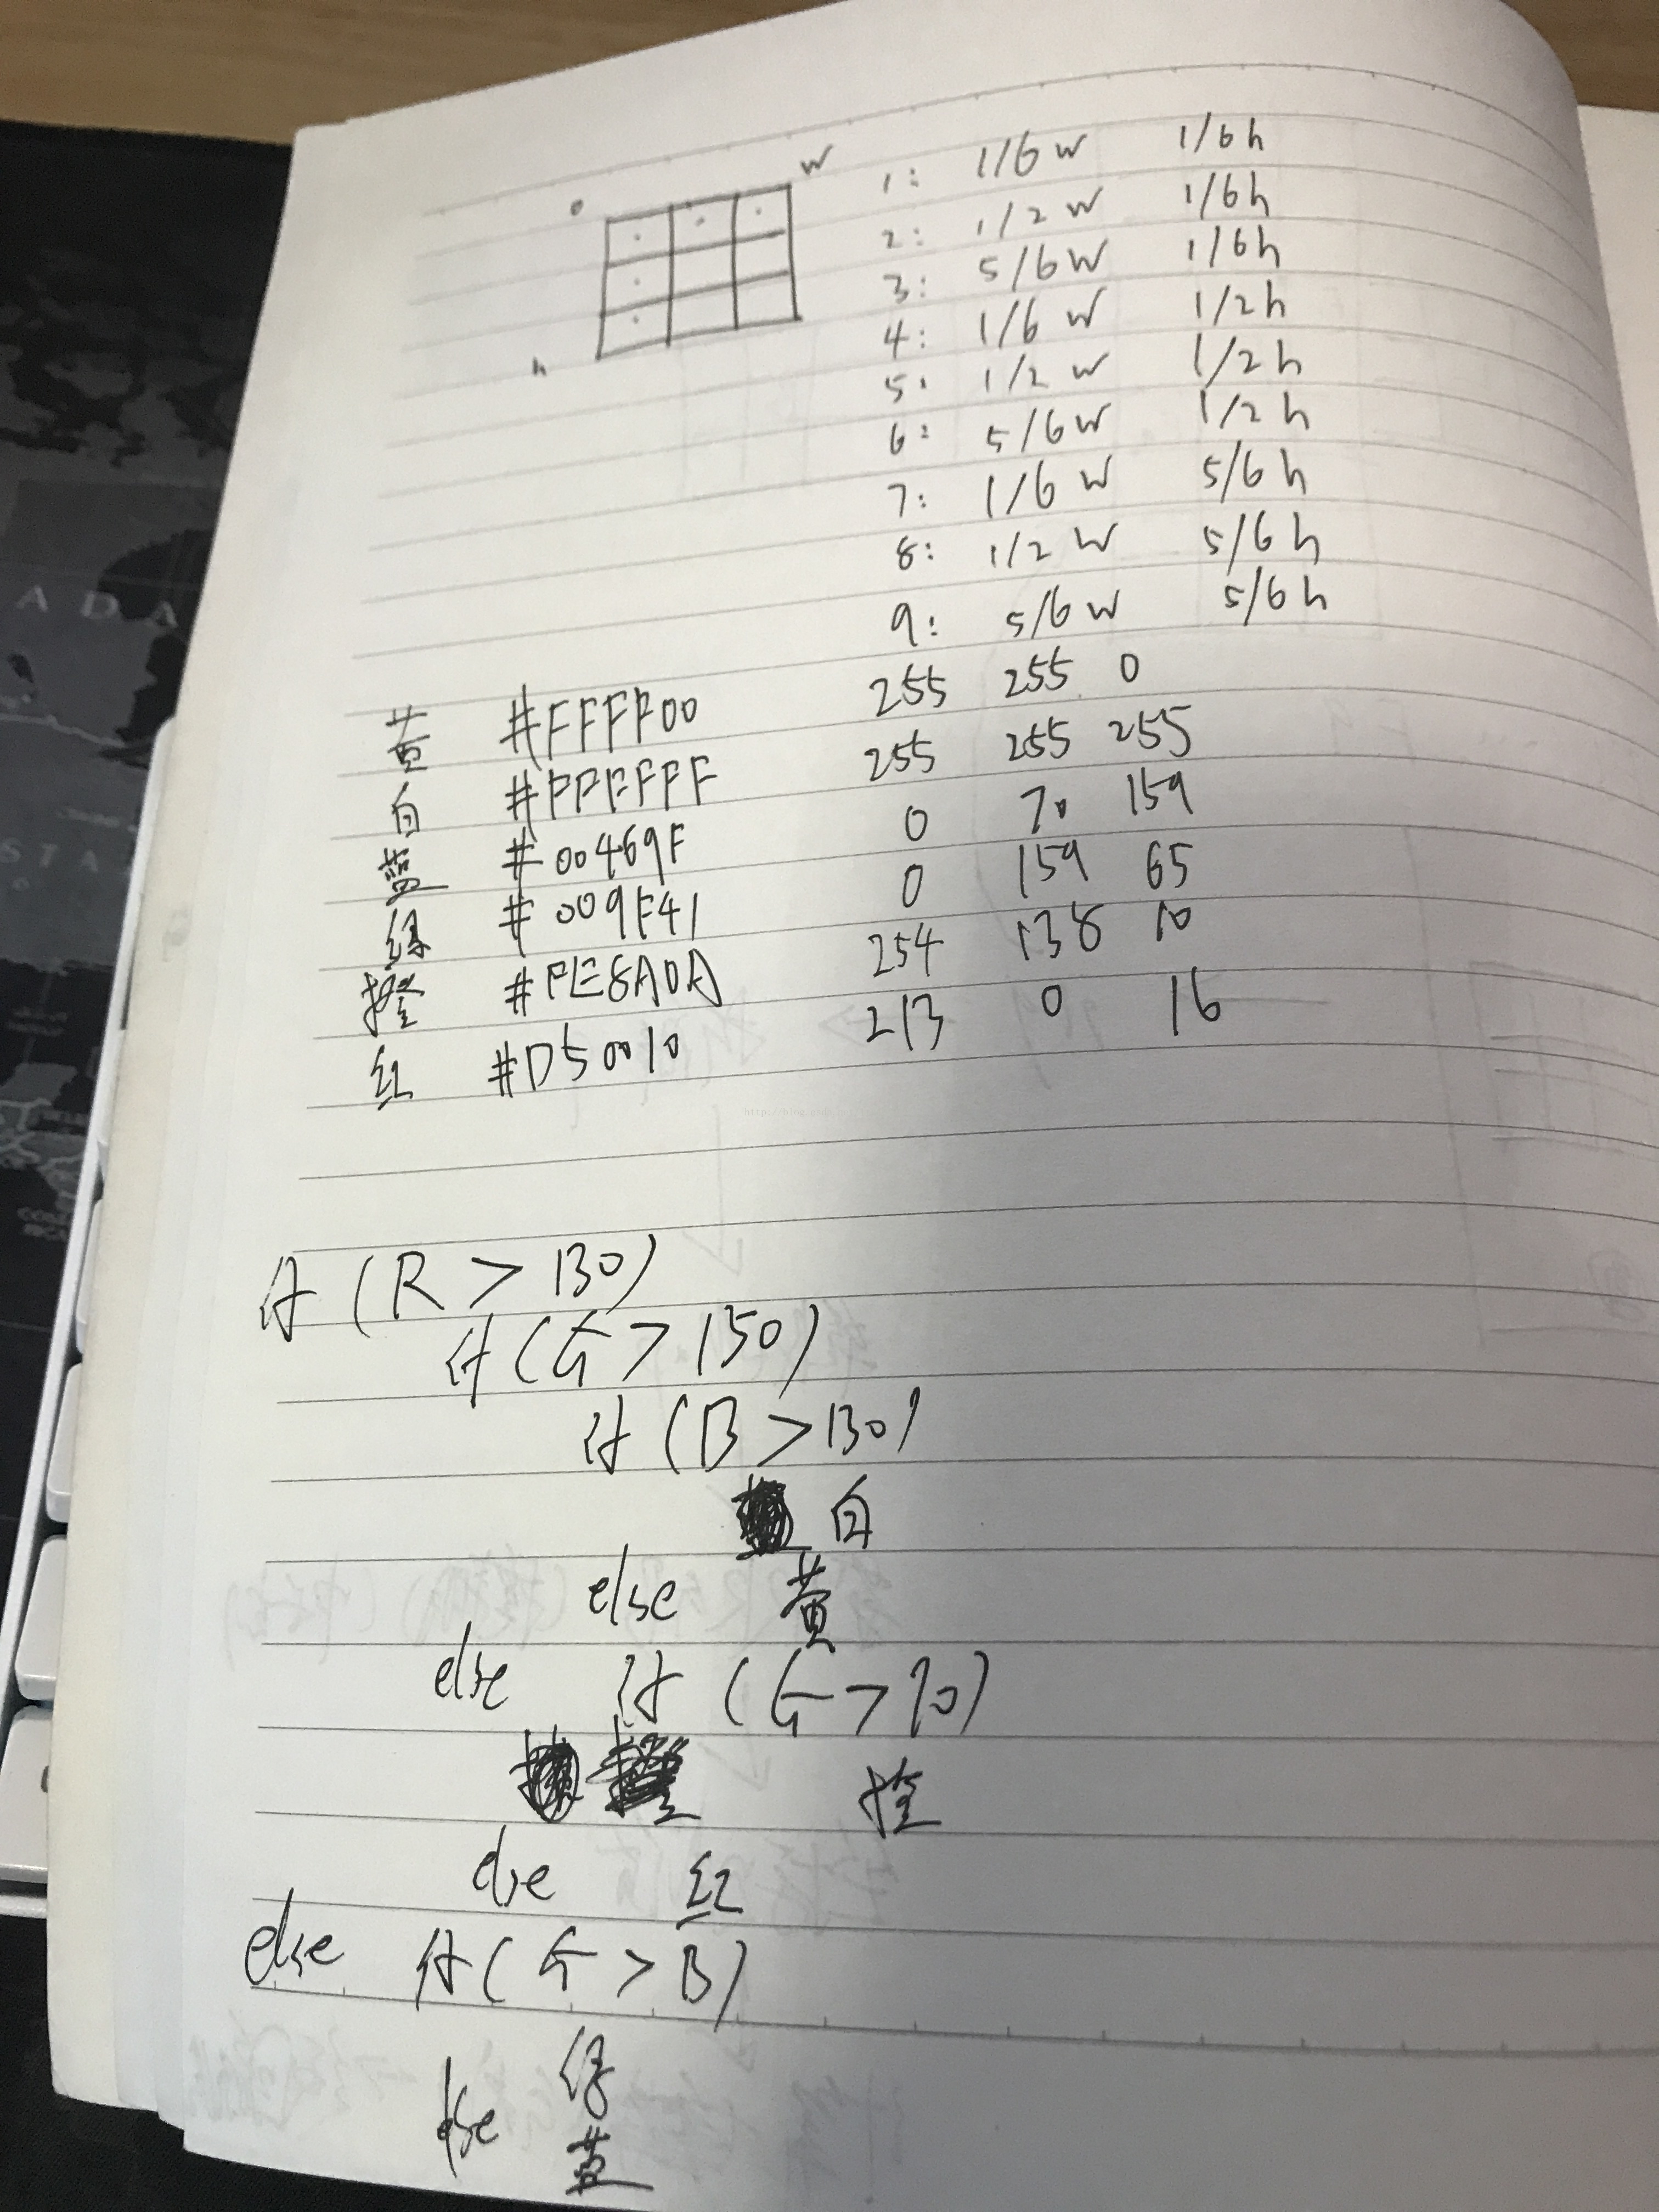 0 W
h
1: 1/6 W 1/6 h
2: 1/2 W 1/6 h
3: 5/6 W 1/6 h
4: 1/6 W 1/2 h
5: 1/2 W 1/2 h
6: 5/6 W 1/2 h
7: 1/6 W 5/6 h
8: 1/2 W 5/6 h
9: 5/6 W 5/6 h
黄 #FFFF00 255 255 0
白 #FFFFFF 255 255 255
蓝 #00469F 0 70 159
绿 #009F41 0 159 65
橙 #FE8A0A 254 138 10
红 #D50010 213 0 16
if (R > 130)
if (G > 150)
if (B > 130)
白
else 黄
else if (G > 70)
橙
else 红
else if (G > B)
绿
else 蓝
ADA
STA